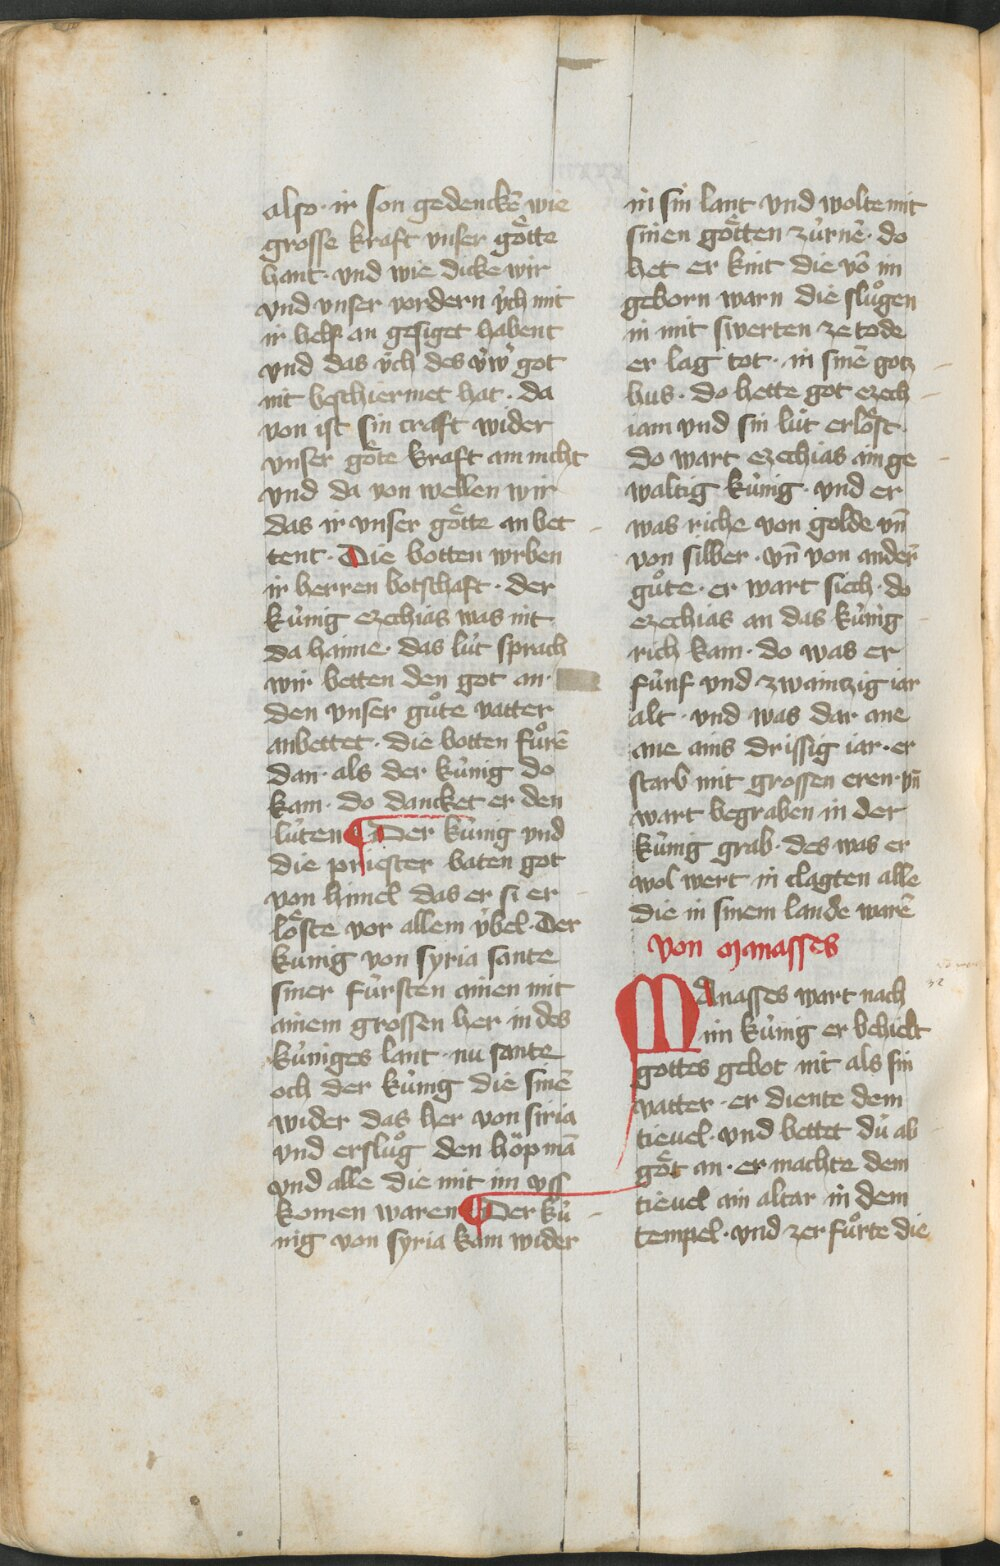 also · ir son gedenckē wie
grosse kraft vnser goͤtte
hant · vnd wie dicke wir
vnd vnser vordern v̇ch mit
ir helf an gesiget habent
vnd das v̇ch des v̇wʾ got
nit beschiermet hat · da
von ist sin craft wider
vnser goͤte kraft am nicht
vnd da von wellen wir
das ir vnser goͤtte an bet
tent · Die botten wrben
ir herren botschaft · der
kv̇nig ezechias was nit
da haime · das lv̇t sprach
wir betten den got an ·
den vnser guͦte vatter
anbettet · die botten fuͦrē
dan · als der kv̇nig do
kam · do dancket er den
lv̇ten ¶ Der kv̇nig vnd
die priester baten got
von himel das er si er
loͤste vor allem v̇bel · Der
kv̇nig von syria sante
siner fv̇rsten ainen mit
ainem grossen her in des
kv̇niges lant · nu sante
och der kv̇nig die sinē
wider das her von siria
vnd ersluͦg den hoͤpmā
vnd alle die mit im vss
komen waren ¶ Der kv̇
nig von syria kam wider
in sin lant vnd wolte mit
sinen goͤtten zv̇rnē · do
het er kint die vō im
geborn warn die sluͦgen
in mit swerten ze tode
er lag tot · in sinē gotz
hus · do hette got ezech
iam vnd sin lv̇t erloͤst ·
do wart ezechias ain ge
waltig kv̇nig · vnd er
was riche von golde vn̄
von silber · vn̄ von anderm̄
guͦte · er wart siech · do
ezechias an das kv̇nig
rich kam · do was er
fv̇nf vnd zwaintzig iar
alt · vnd was dar ane
ane ains drissig iar · er
starb mit grossen eren · vn̄
wart begraben in der
kv̇nig grab · des was er
wol wert in clagten alle
die in sinem lande warē
von Manasses
Manasses wart nach
im kv̇nig er behielt
gottes gebot nit als sin
vatter · er diente dem
tieuel · vnd bettet dv̇ ab
goͤt an · er machte dem
tieuel ain altar in dem
tempel · vnd zer fuͦrte die